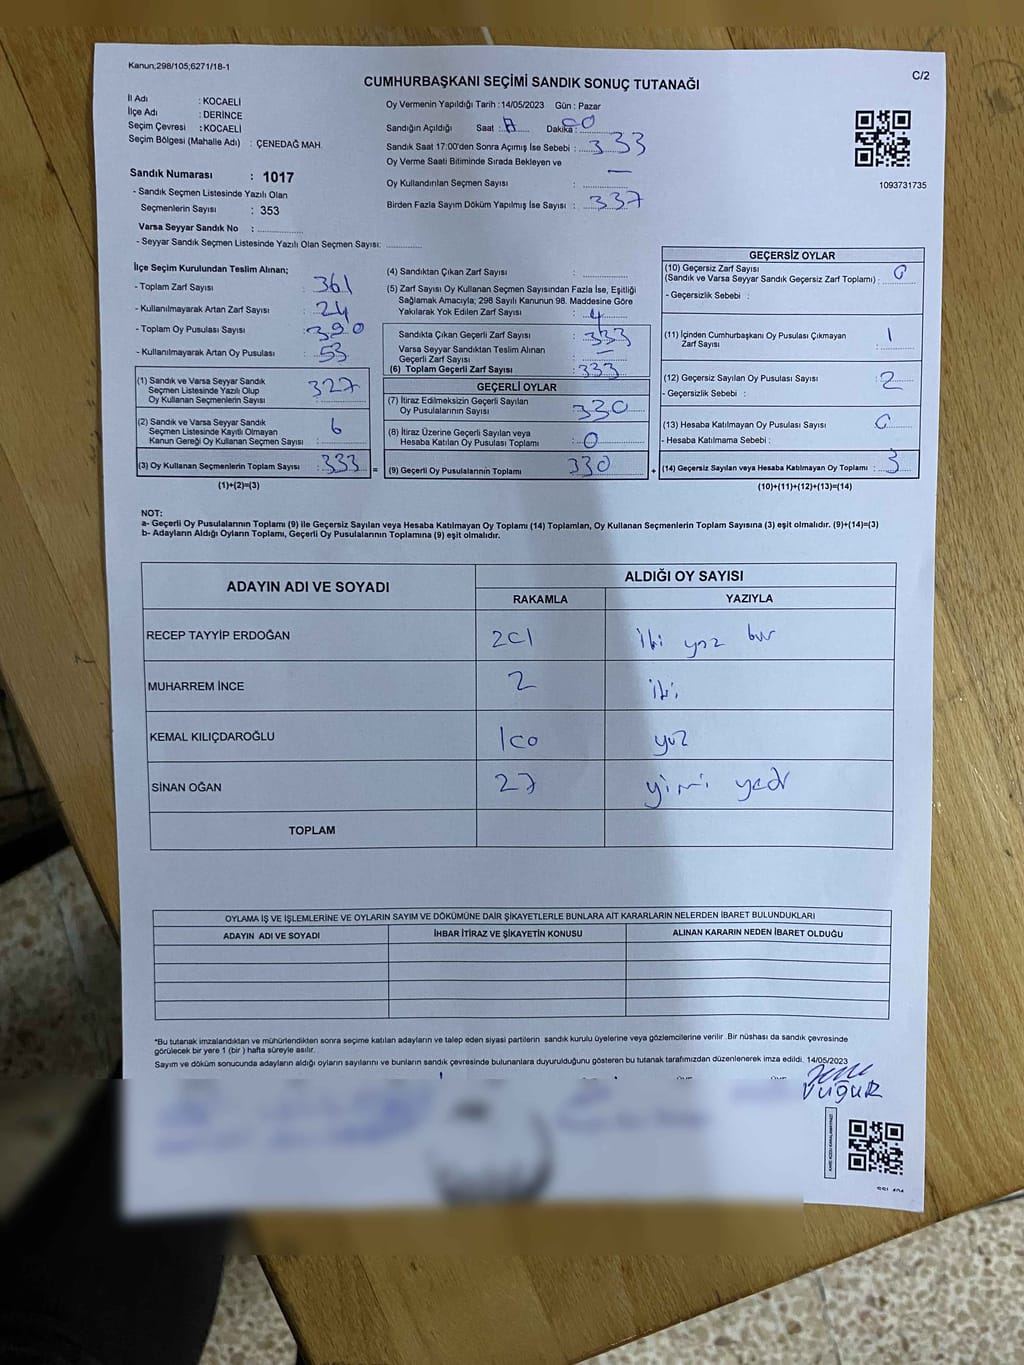 Kanun;298/105;6271/18-1
C/2
CUMHURBAŞKANI SEÇİMİ SANDIK SONUÇ TUTANAĞI
İl Adı : KOCAELİ
İlçe Adı : DERİNCE
Seçim Çevresi : KOCAELİ
Seçim Bölgesi (Mahalle Adı) : ÇENEDAĞ MAH.
Sandık Numarası : 1017
- Sandık Seçmen Listesinde Yazılı Olan
Seçmenlerin Sayısı : 353
Varsa Seyyar Sandık No :
- Seyyar Sandık Seçmen Listesinde Yazılı Olan Seçmen Sayısı:
Oy Vermenin Yapıldığı Tarih : 14/05/2023 Gün : Pazar
Sandığın Açıldığı Saat : Dakika : 00
Sandık Saat 17:00'den Sonra Açımış İse Sebebi : 333
Oy Verme Saati Bitiminde Sırada Bekleyen ve
Oy Kullandırılan Seçmen Sayısı : —
Birden Fazla Sayım Döküm Yapılmış İse Sayısı : 337
1093731735
İlçe Seçim Kurulundan Teslim Alınan;
- Toplam Zarf Sayısı : 361
- Kullanılmayarak Artan Zarf Sayısı : 24
- Toplam Oy Pusulası Sayısı : 390
- Kullanılmayarak Artan Oy Pusulası : 53
(1) Sandık ve Varsa Seyyar Sandık
Seçmen Listesinde Yazılı Olup
Oy Kullanan Seçmenlerin Sayısı : 327
(2) Sandık ve Varsa Seyyar Sandık
Seçmen Listesinde Kayıtlı Olmayan
Kanun Gereği Oy Kullanan Seçmen Sayısı : 6
(3) Oy Kullanan Seçmenlerin Toplam Sayısı : 333 =
(1)+(2)=(3)
(4) Sandıktan Çıkan Zarf Sayısı :
(5) Zarf Sayısı Oy Kullanan Seçmen Sayısından Fazla İse, Eşitliği
Sağlamak Amacıyla; 298 Sayılı Kanunun 98. Maddesine Göre
Yakılarak Yok Edilen Zarf Sayısı : 4
Sandıkta Çıkan Geçerli Zarf Sayısı : 333
Varsa Seyyar Sandıktan Teslim Alınan
Geçerli Zarf Sayısı : —
(6) Toplam Geçerli Zarf Sayısı : 333
GEÇERLİ OYLAR
(7) İtiraz Edilmeksizin Geçerli Sayılan
Oy Pusulalarının Sayısı : 330
(8) İtiraz Üzerine Geçerli Sayılan veya
Hesaba Katılan Oy Pusulası Toplamı : 0
(9) Geçerli Oy Pusulalarının Toplamı 330 +
GEÇERSİZ OYLAR
(10) Geçersiz Zarf Sayısı
(Sandık ve Varsa Seyyar Sandık Geçersiz Zarf Toplamı) : 0
- Geçersizlik Sebebi :
(11) İçinden Cumhurbaşkanı Oy Pusulası Çıkmayan
Zarf Sayısı : 1
(12) Geçersiz Sayılan Oy Pusulası Sayısı : 2
- Geçersizlik Sebebi :
(13) Hesaba Katılmayan Oy Pusulası Sayısı : 0
- Hesaba Katılmama Sebebi :
(14) Geçersiz Sayılan veya Hesaba Katılmayan Oy Toplamı : 3
(10)+(11)+(12)+(13)=(14)
NOT:
a- Geçerli Oy Pusulalarının Toplamı (9) ile Geçersiz Sayılan veya Hesaba Katılmayan Oy Toplamı (14) Toplamları, Oy Kullanan Seçmenlerin Toplam Sayısına (3) eşit olmalıdır. (9)+(14)=(3)
b- Adayların Aldığı Oyların Toplamı, Geçerli Oy Pusulalarının Toplamına (9) eşit olmalıdır.
ADAYIN ADI VE SOYADI
ALDIĞI OY SAYISI
RAKAMLA YAZIYLA
RECEP TAYYİP ERDOĞAN 201 iki yüz bir
MUHARREM İNCE 2 iki
KEMAL KILIÇDAROĞLU 100 yüz
SİNAN OĞAN 27 yirmi yedi
TOPLAM
OYLAMA İŞ VE İŞLEMLERİNE VE OYLARIN SAYIM VE DÖKÜMÜNE DAİR ŞİKAYETLERLE BUNLARA AİT KARARLARIN NELERDEN İBARET BULUNDUKLARI
ADAYIN ADI VE SOYADI İHBAR İTİRAZ VE ŞİKAYETİN KONUSU ALINAN KARARIN NEDEN İBARET OLDUĞU
*Bu tutanak imzalandıktan ve mühürlendikten sonra seçime katılan adayların ve talep eden siyasi partilerin sandık kurulu üyelerine veya gözlemcilerine verilir .Bir nüshası da sandık çevresinde
görülecek bir yere 1 (bir ) hafta süreyle asılır.
Sayım ve döküm sonucunda adayların aldığı oyların sayılarını ve bunların sandık çevresinde bulunanlara duyurulduğunu gösteren bu tutanak tarafımızdan düzenlenerek imza edildi. 14/05/2023